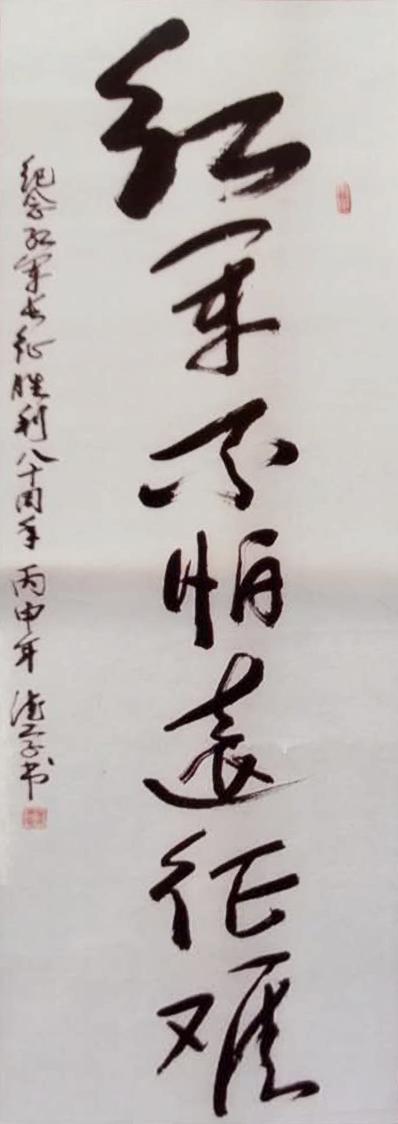 红军不怕远征难
纪念红军长征胜利八十周年 丙申年 书